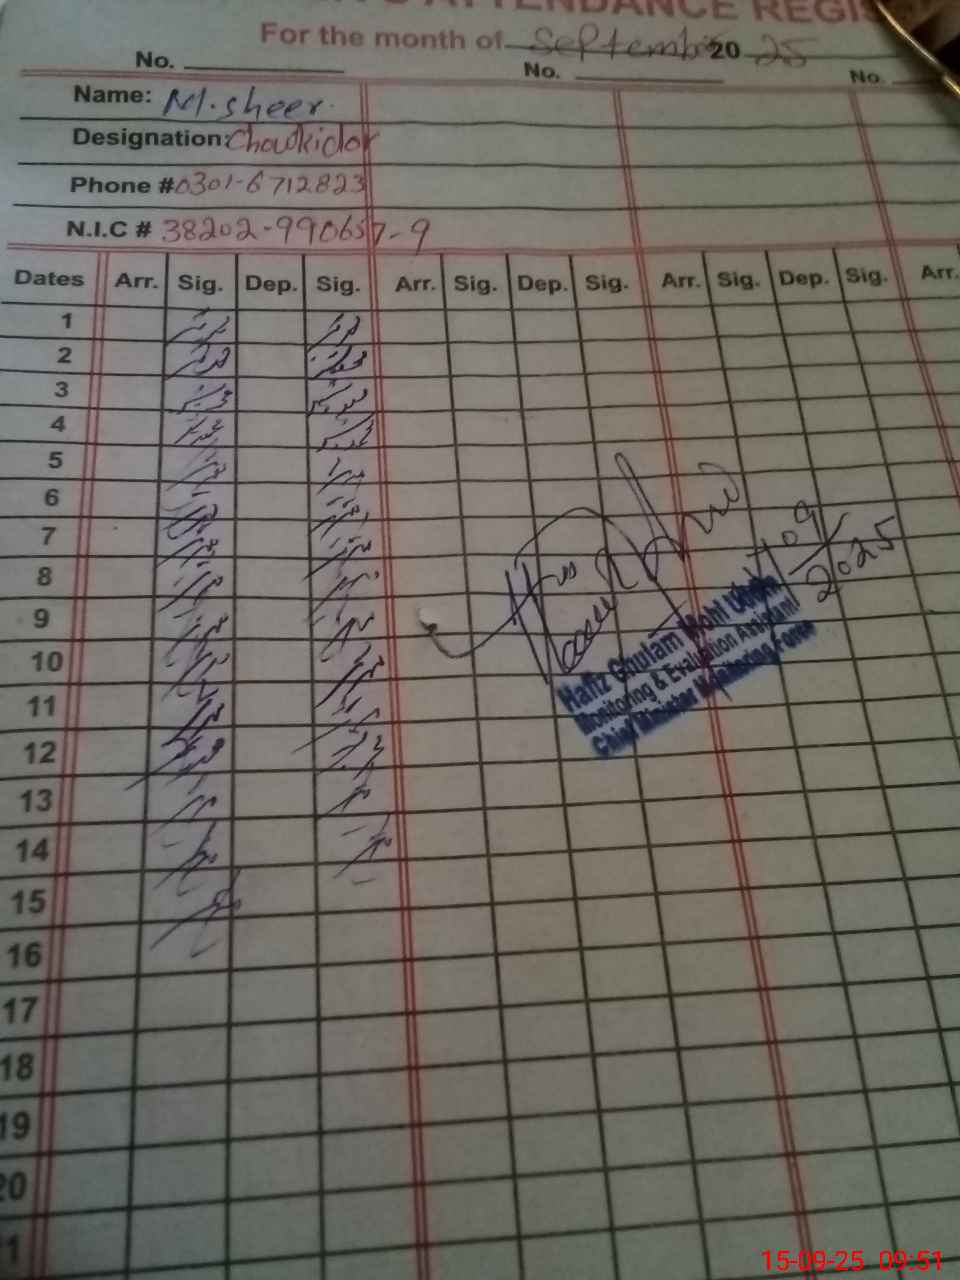 ATTENDANCE REGIS
For the month of September 20 25
No. No. No.
Name: M. sheer.
Designation: Chowkidar
Phone # 0301-6712823
N.I.C # 38202-990657-9
Dates Arr. Sig. Dep. Sig. Arr. Sig. Dep. Sig. Arr. Sig. Dep. Sig. Arr.
1
2
3
4
5
6
7
8
9
10
11
12
13
14
15
16
17
18
19
20
09
2025
Hafiz Ghulam Mohi Uddin
Monitoring & Evaluation Assistant
Chief Minister Monitoring Force
15-09-25 09:51